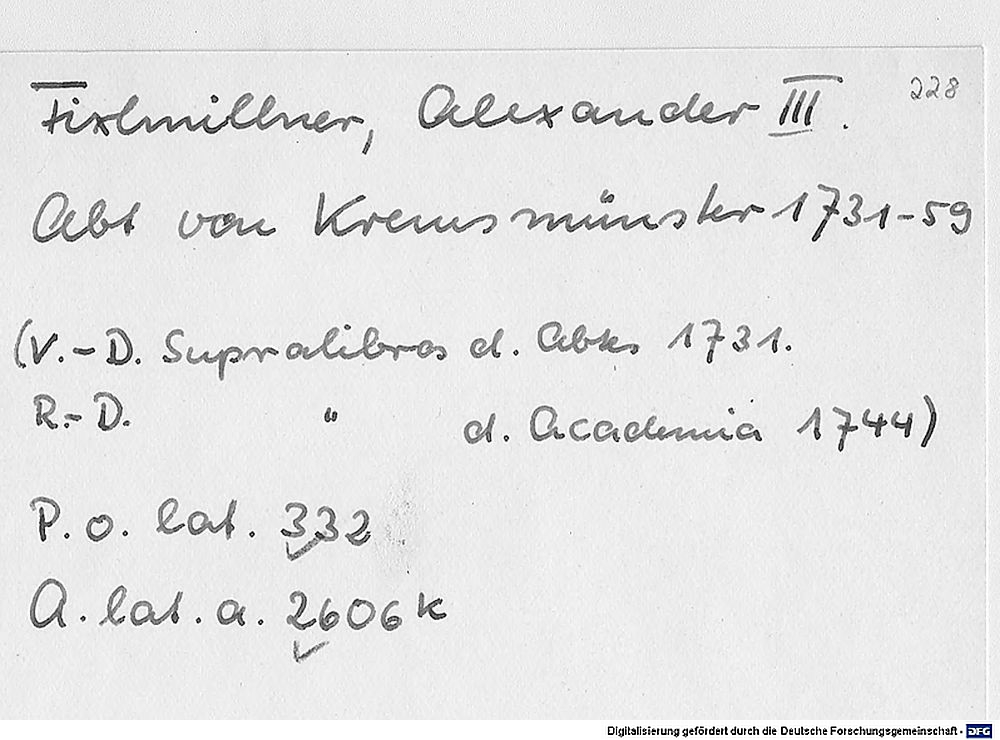 228
Fixlmillner, Alexander III.
Abt von Kremsmünster 1731-59
(V.-D. Supralibros d. Abtes 1731.
R.-D. " d. Academia 1744)
P. o. lat. 332
A. lat. a. 2606 k
Digitalisierung gefördert durch die Deutsche Forschungsgemeinschaft - DFG